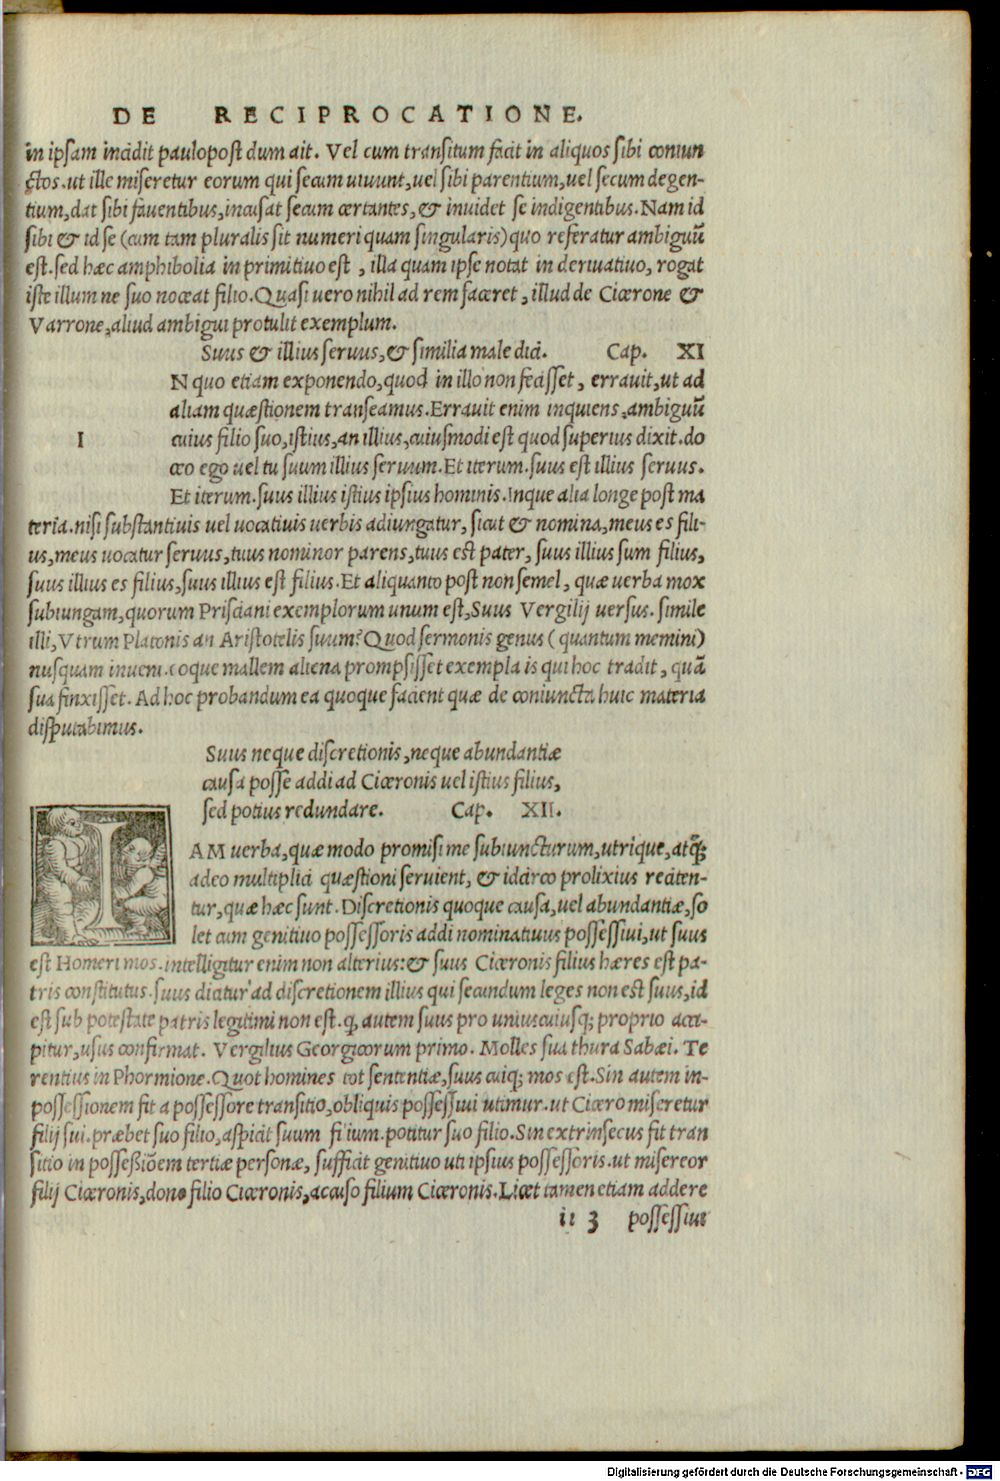 DE RECIPROCATIONE.
in ipsam incidit paulopost dum ait. Vel cum transitum facit in aliquos sibi coniun
ctos. ut ille miseretur eorum qui secum uiuunt, uel sibi parentium, uel secum degen-
tium, dat sibi fauentibus, incusat secum certantes, & inuidet se indigentibus. Nam id
sibi & id se (cum tam pluralis sit numeri quam singularis) quo referatur ambiguū
est. sed hæc amphibolia in primitiuo est, illa quam ipse notat in deriuatiuo, rogat
iste illum ne suo noceat filio. Quasi uero nihil ad rem faceret, illud de Cicerone &
Varrone, aliud ambigui protulit exemplum.
Suus & illius seruus, & similia male dici. Cap. XI
I
N quo etiam exponendo, quod in illo non fecisset, errauit, ut ad
aliam quæstionem transeamus. Errauit enim inquiens, ambiguū
cuius filio suo, istius, an illius, cuiusmodi est quod superius dixit. do
ceo ego uel tu suum illius seruum. Et iterum. suus est illius seruus.
Et iterum. suus illius istius ipsius hominis. Inque alia longe post ma
teria. nisi substantiuis uel uocatiuis uerbis adiungatur, sicut & nomina, meus es fili-
us, meus uocatur seruus, tuus nominor parens, tuus est pater, suus illius sum filius,
suus illius es filius, suus illius est filius. Et aliquanto post non semel, quæ uerba mox
subiungam, quorum Prisciani exemplorum unum est, Suus Vergilij uersus. simile
illi, Vtrum Platonis an Aristotelis suum? Quod sermonis genus (quantum memini)
nusquam inueni. eoque mallem aliena prompsisset exempla is qui hoc tradit, quā
sua finxisset. Ad hoc probandum ea quoque facient quæ de coniuncta huic materia
disputabimus.
Suus neque discretionis, neque abundantiæ
causa posse addi ad Ciceronis uel istius filius,
sed potius redundare. Cap. XII.
I
AM uerba, quæ modo promisi me subiuncturum, utrique, atq̃;
adeo multiplici quæstioni seruient, & idcirco prolixius reciten-
tur, quæ hæc sunt. Discretionis quoque causa, uel abundantiæ, so
let cum genitiuo possessoris addi nominatiuus possessiui, ut suus
est Homeri mos. intelligitur enim non alterius: & suus Ciceronis filius hæres est pa-
tris constitutus. suus dicitur ad discretionem illius qui secundum leges non est suus, id
est sub potestate patris legitimi non est. q, autem suus pro uniuscuiusq; proprio acci-
pitur, usus confirmat. Vergilius Georgicorum primo. Molles sua thura Sabæi. Te
rentius in Phormione. Quot homines tot sententiæ, suus cuiq; mos est. Sin autem in-
possessionem fit a possessore transitio, obliquis possessiui utimur. ut Cicero miseretur
filij sui. præbet suo filio, aspicit suum filium. potitur suo filio. Sin extrinsecus fit tran
sitio in possessiōem tertiæ personæ, sufficit genitiuo uti ipsius possessoris. ut misereor
filij Ciceronis, dono filio Ciceronis, accuso filium Ciceronis. Licet tamen etiam addere
ii 3 possessiui
Digitalisierung gefördert durch die Deutsche Forschungsgemeinschaft - DFG